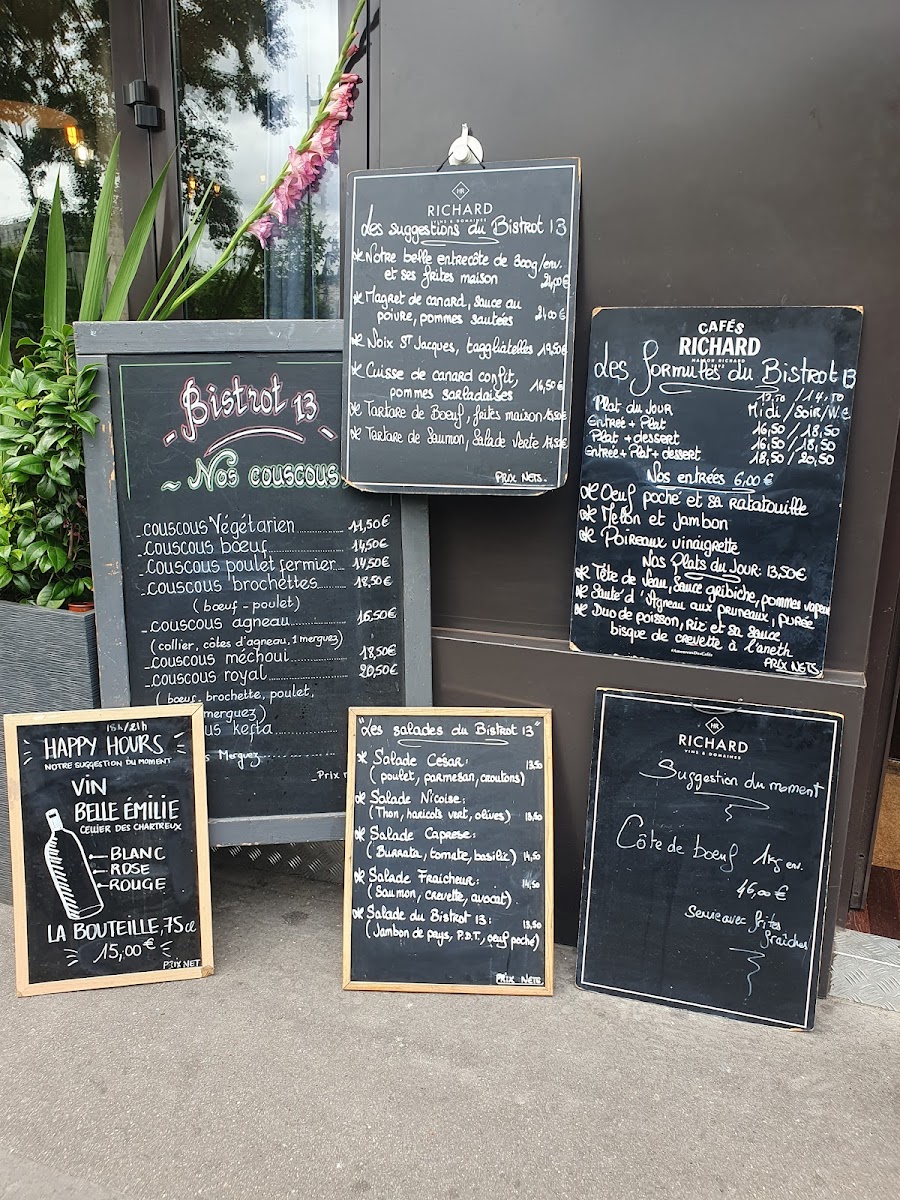 HR
RICHARD
VINS & DOMAINES
Les suggestions du Bistrot 13
* Notre belle entrecôte de 300g/env.
et ses frites maison 24,00€
* Magret de canard, sauce au
poivre, pommes sautées 21,00€
* Noix St Jacques, taggliatelles 19,50€
* Cuisse de canard confit,
pommes sarladaises 16,50€
* Tartare de Boeuf, frites maison
* Tartare de Saumon, Salade verte 17,50€
PRIX NETS.
Bistrot 13
~ Nos couscous
_couscous Végétarien 11,50€
_couscous bœuf 14,50€
_couscous poulet fermier 14,50€
_couscous brochettes 18,50€
(bœuf - poulet)
_couscous agneau 16,50€
(collier, côtes d'agneau, 1 merguez)
_couscous méchoui 18,50€
_couscous royal 20,50€
(bœuf, brochette, poulet,
merguez)
us kefta
Merguez
_Prix n
CAFÉS
RICHARD
MAISON RICHARD
Les formules du Bistrot 13
13,50 / 14,50
Plat du Jour Midi / Soir/W.E
Entrée + Plat 16,50 / 18,50
Plat + dessert 16,50 / 18,50
Entrée + Plat + dessert 18,50 / 20,50
Nos entrées 6,00€
* Oeuf poché et sa ratatouille
* Melon et jambon
* Poireaux vinaigrette
Nos Plats du Jour: 13,50€
* Tête de Veau, Sauce gribiche, pommes vapeur
* Sauté d'Agneau aux pruneaux, purée
* Duo de poisson, Riz et sa sauce
bisque de crevette à l'aneth
PRIX NETS
15h/21h
HAPPY HOURS
NOTRE SUGGESTION DU MOMENT
VIN
BELLE ÉMILIE
CELLIER DES CHARTREUX
BLANC
ROSE
ROUGE
LA BOUTEILLE, 75cl
15,00€
PRIX NET
"Les salades du Bistrot 13"
* Salade César:
(poulet, parmesan, croutons) 13,50
* Salade Niçoise:
(Thon, haricots vert, olives) 13,50
* Salade Caprese:
(Burrata, tomate, basilic) 14,50
* Salade Fraicheur:
(Saumon, crevette, avocat) 14,50
* Salade du Bistrot 13:
(Jambon de pays, P.D.T., oeuf poché) 13,50
PRIX NETS
HR
RICHARD
VINS & DOMAINES
Suggestion du moment
Côte de boeuf 1kg env.
46,00€
Servie avec frites
fraîches